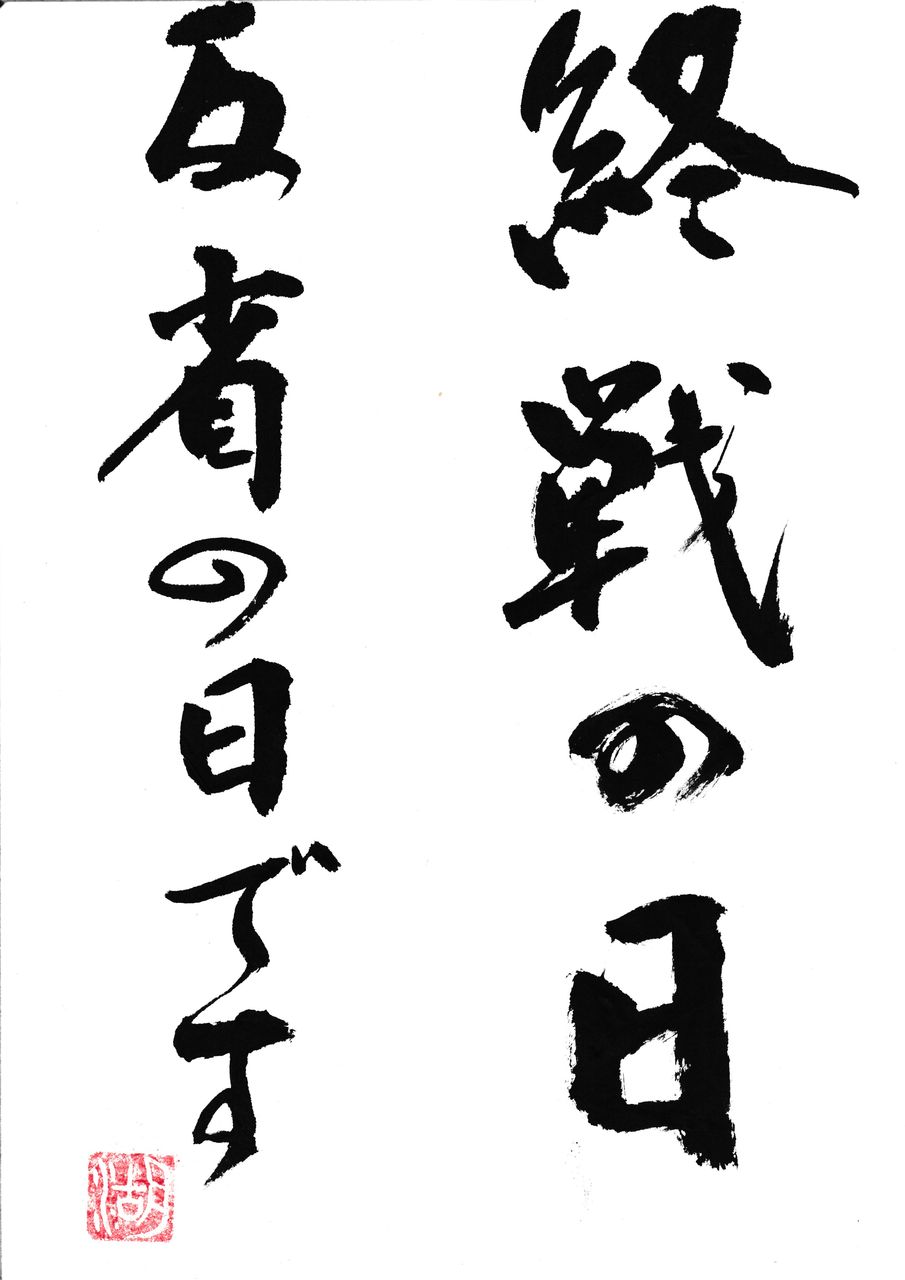 終戦の日
反省の日です
湖